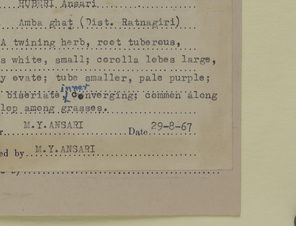 HUBERI Ansari
Amba ghat (Dist. Ratnagiri)
A twining herb, root tuberous,
s white, small; corolla lobes large,
y ovate; tube smaller, pale purple;
inner
biseriate converging; common along
among grasses.
M.Y.ANSARI Date 29-8-67
ed by M.Y.ANSARI